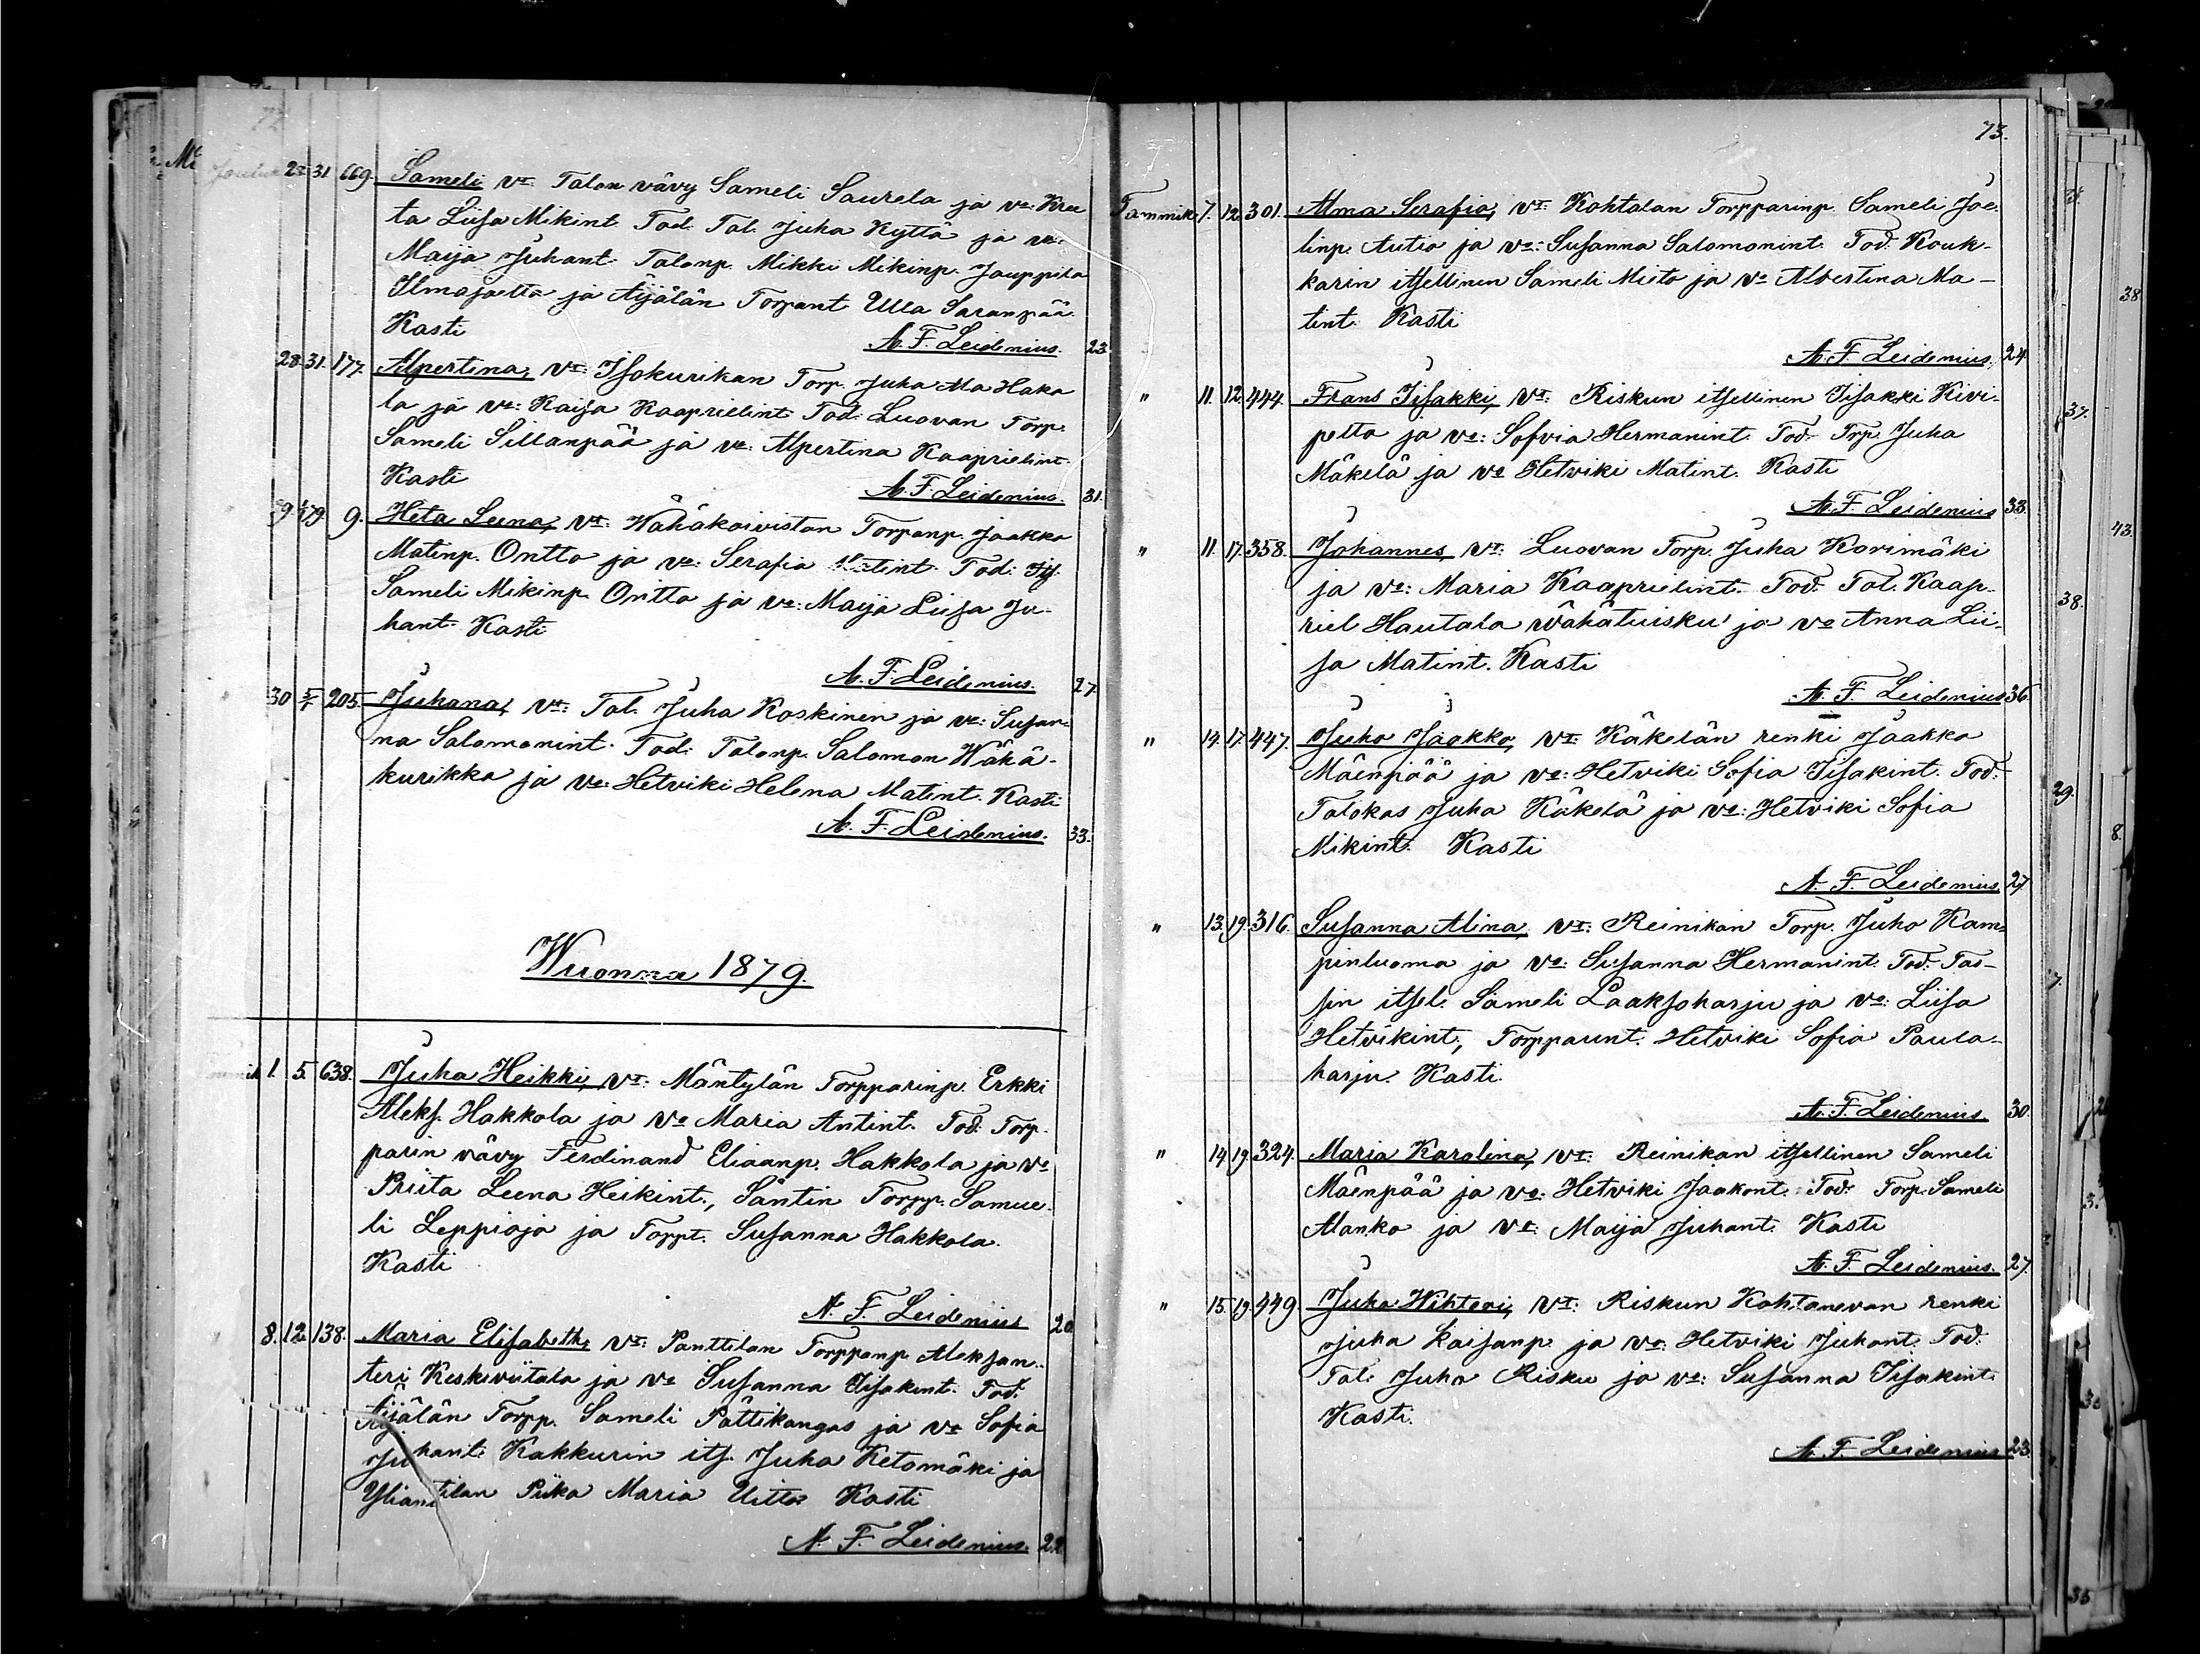 72
Joulu 23 31 669. Sameli vt: Talon vävy Sameli Saurela ja vo: Kree
ta Liisa Mikint. Tod. Tal. Juha Kyttä ja vo:
Maija Juhant. Talonp. Mikki Mikinp. Jauppila
Ilmajoelta ja Äijälän Torpant Ulla Saranpää.
Kasti A. F. Leidenius. 23
28. 31. 177. Alpertina, vt: Isokurikan Torp. Juha Ala Haka
la ja vo: Kaisa Kaaprielint. Tod: Luovan Torp.
Sameli Sillanpää ja vo: Alpertina Kaaprielint.
Kasti A. F. Leidenius. 31.
9. Heta Leena, vt: Wähäkoiviston Torpanp. Jaakko
Matinp. Ontto ja vo: Serafia Matint. Tod: Its.
Sameli Mikinp. Ontto ja vo: Maija Liisa Ju-
hant. Kasti
A. F. Leidenius. 27.
30 5/1 205. Juhana, vt: Tal. Juha Koskinen ja vo: Susan-
na Salomonint. Tod: Talonp. Salomon Wähä-
kurikka ja vo: Hetviki Helena Matint. Kasti
A. F. Leidenius. 33.
Wuonna 1879.
1. 5. 638. Juha Heikki, vt: Mäntylän Torpparinp. Erkki
Aleks. Hakkola ja vo Maria Antint. Tod: Torp-
parin vävy Ferdinand Eliaanp. Hakkola ja vo
Priita Leena Heikint., Säntin Torpp. Samue-
li Leppioja ja Torpt. Susanna Hakkola.
Kasti
A. F. Leidenius 20
8. 12. 138. Maria Elisabeth, vt: Panttilan Torppanp. Aleksan-
teri Keskiviitala ja vo Susanna Iisakint. Tod.
Äijälän Torpp. Sameli Pättikangas ja vo Sofia
Juhant. Kakkurin its. Juha Ketomäki ja
Yliantilan Piika Maria Uitto Kasti
A. F. Leidenius. 22
73.
Tammik. 7. 12. 301. Alma Serafia, vt: Kohtalan Torpparinp. Sameli Joe-
linp. Autio ja vo: Susanna Salomonint. Tod. Kouk-
karin itsellinen Sameli Mieto ja vo Albertina Ma-
tint. Kasti
A. F. Leidenius. 24.
" 11. 12. 444. Frans Iisakki, vt: Riskun itsellinen Iisakki Kivi-
pelto ja vo: Sofvia Hermanint. Tod. Trp. Juha
Mäkelä ja vo Hetviki Matint. Kasti
A. F. Leidenius 33.
" 11. 17. 358. Johannes, vt: Luovan Torp. Juha Korimäki
ja vo: Maria Kaaprielint. Tod. Tal. Kaap-
riel Hautala Wähätuisku ja vo Anna Lii-
sa Matint. Kasti
A. F. Leidenius 36.
" 14. 17. 447. Juho Jaakko, vt: Käkelän renki Jaakko
Mäenpää ja vo: Hetviki Sofia Iisakint. Tod.
Talokas Juha Käkelä ja vo: Hetviki Sofia
Mikint. Kasti
A. F. Leidenius. 27
" 13. 19. 316. Susanna Alina, vt: Reinikan Torp. Juho Kam-
pinluoma ja vo: Susanna Hermanint. Tod. Tas-
sin itsel. Sameli Laaksoharju ja vo: Liisa
Hetvikint., Torppaunt. Hetviki Sofia Paula-
harju. Kasti.
A. F. Leidenius. 30.
" 14. 19. 324. Maria Karolina, vt: Reinikan itsellinen Sameli
Mäenpää ja vo: Hetviki Jaakont. Tod. Torp. Sameli
Alanko ja vo: Maija Juhant. Kasti
A. F. Leidenius. 27.
" 15. 19. 449. Juha Wihteri, vt: Riskun Kohtanevan renki
Juha Kaisanp. ja vo: Hetviki Juhant. Tod.
Tal. Juha Risku ja vo: Susanna Iisakint.
Kasti.
A. F. Leidenius 23.